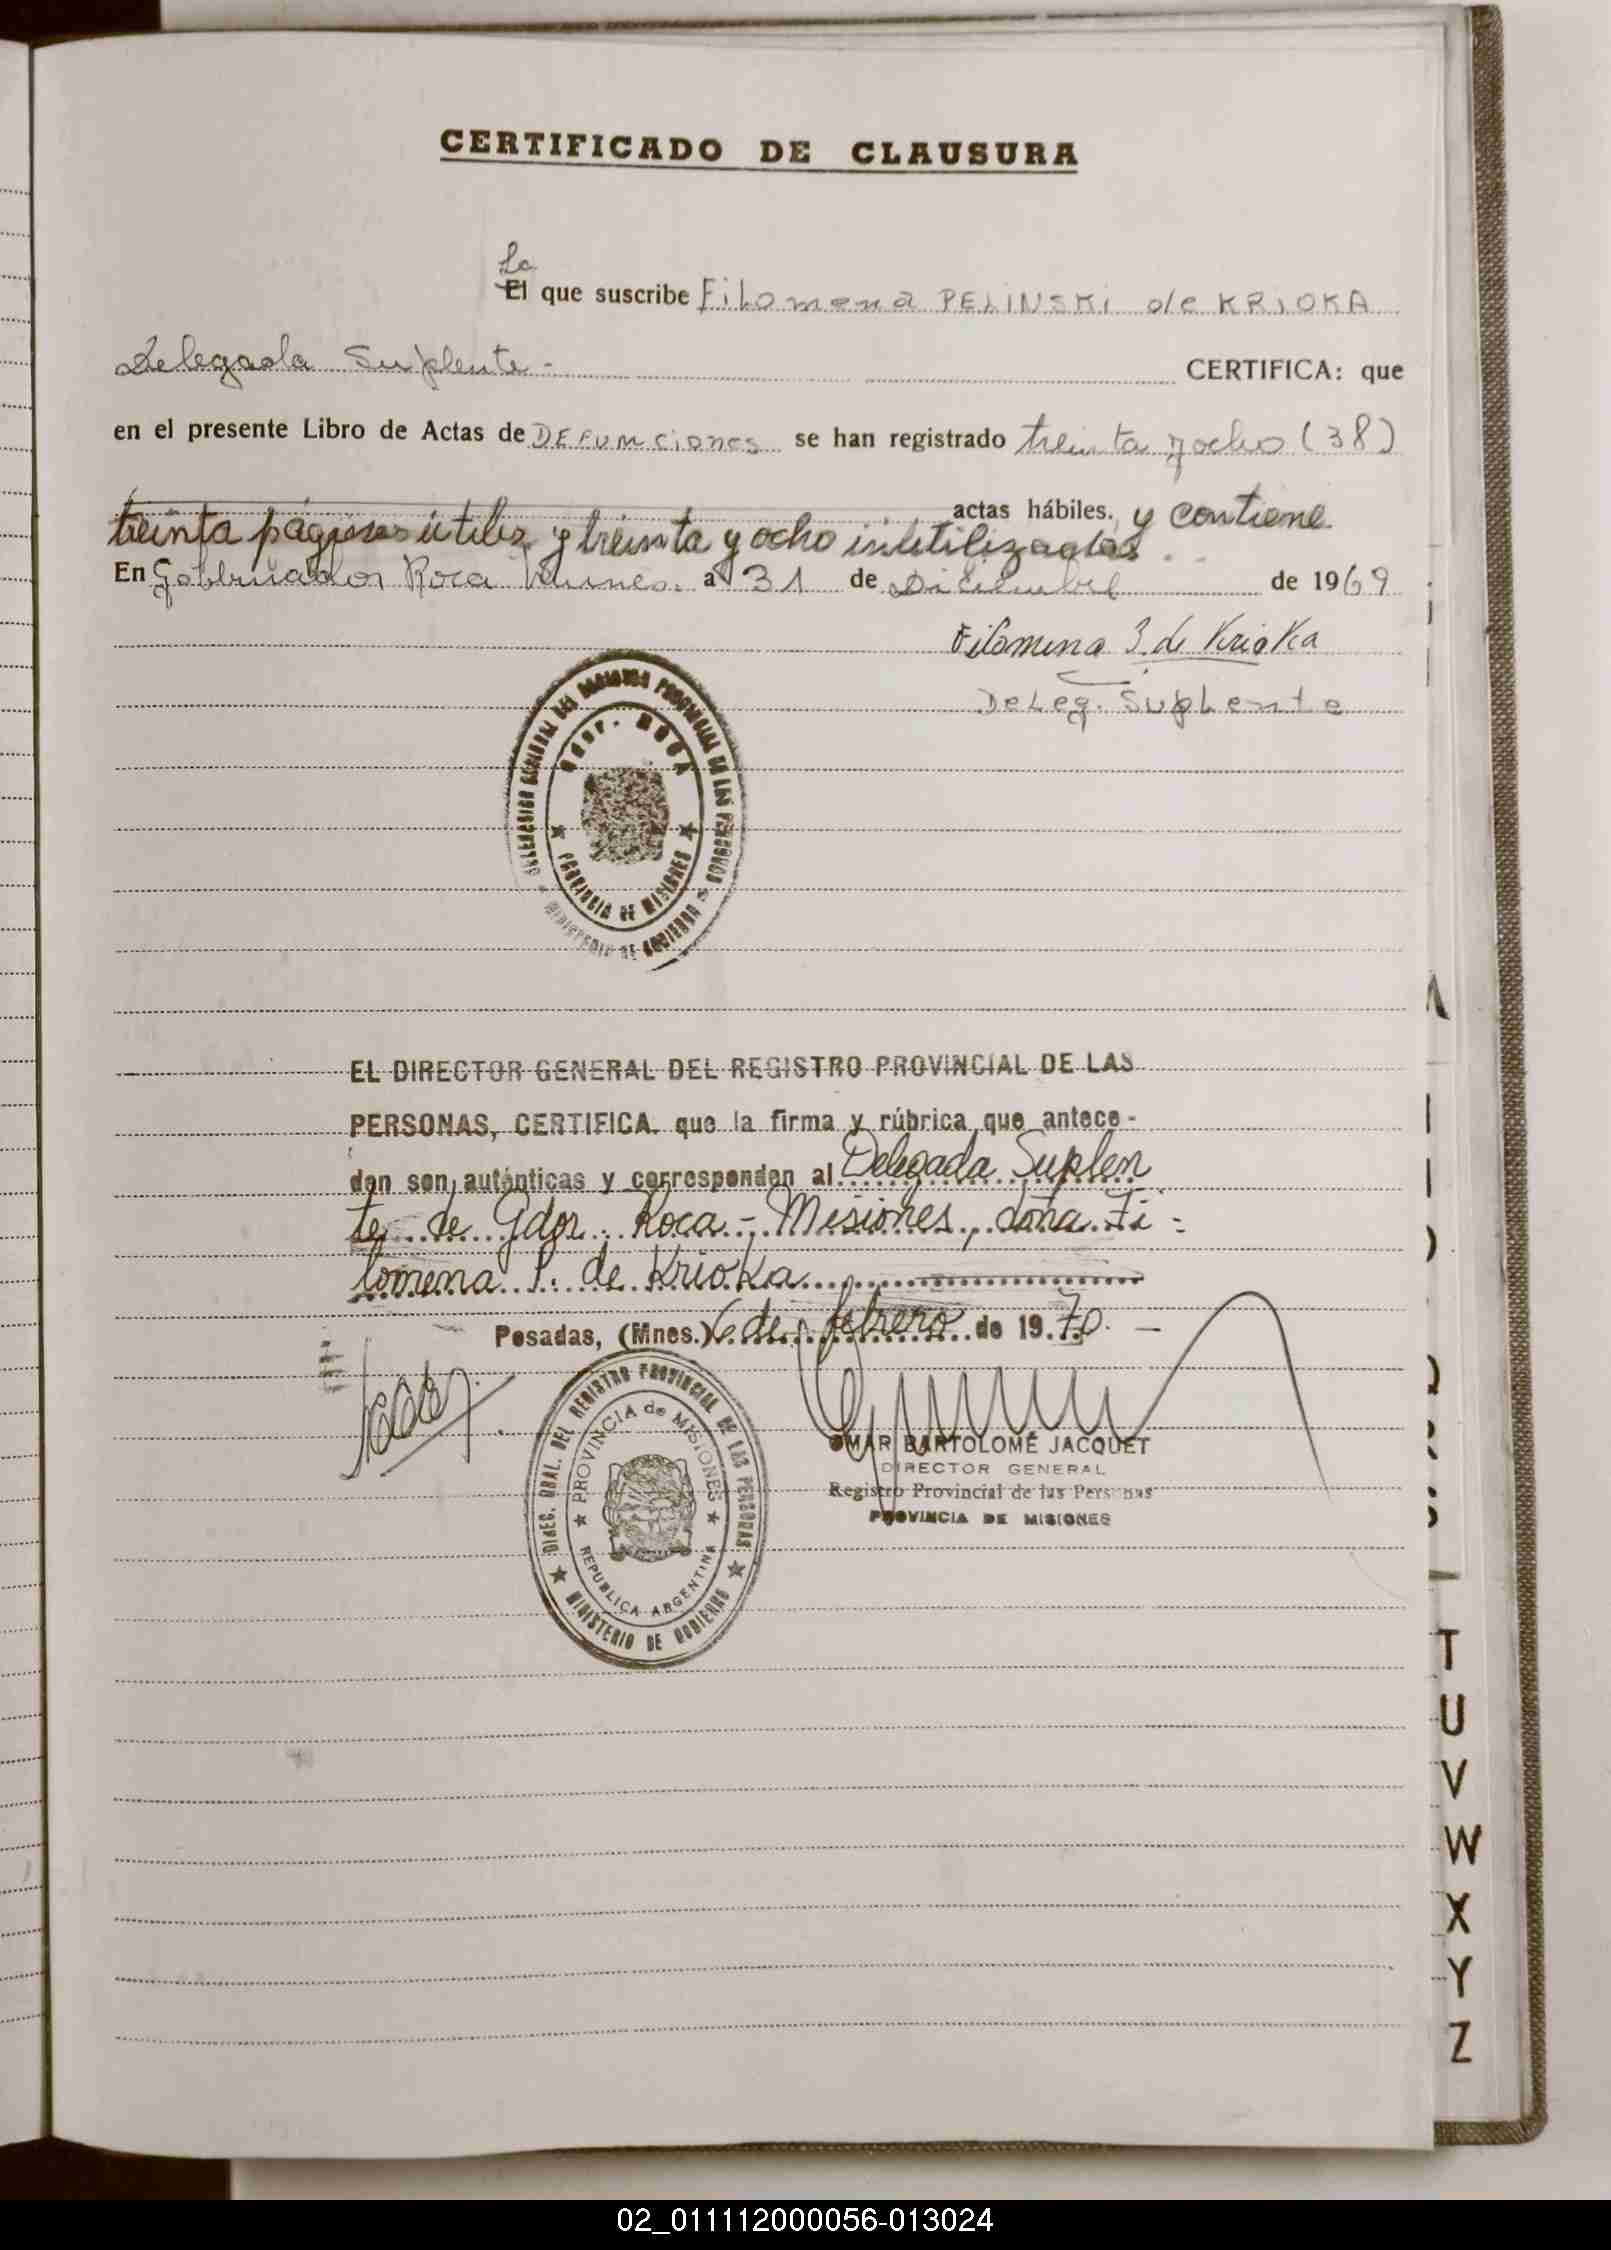 CERTIFICADO DE CLAUSURA
La
El que suscribe Filomena PELINSKI de KRIOKA
Delegada Suplente - CERTIFICA: que
en el presente Libro de Actas de DEFUNCiones se han registrado treinta y ocho (38)
actas hábiles. y contiene
treinta páginas útiles y treinta y ocho inutilizadas
En Gobernador Roca Mnes. a 31 de Diciembre de 1969
Filomena P. de Krioka
Deleg. Suplente
DELEGACION GENERAL DEL REGISTRO PROVINCIAL DE LAS PERSONAS
Gdor. ROCA
PROVINCIA DE MISIONES
MINISTERIO DE GOBIERNO
EL DIRECTOR GENERAL DEL REGISTRO PROVINCIAL DE LAS
PERSONAS, CERTIFICA que la firma y rúbrica que antece-
den son auténticas y corresponden al Delegada Suplen
te de Gdor. Roca - Misiones, doña Fi-
lomena P. de Krioka
Posadas, (Mnes.) 6 de febrero de 1970. -
DIREC. GRAL. DEL REGISTRO PROVINCIAL DE LAS PERSONAS
PROVINCIA de MISIONES
REPUBLICA ARGENTINA
MINISTERIO DE GOBIERNO
OMAR BARTOLOMÉ JACQUET
DIRECTOR GENERAL
Registro Provincial de las Personas
PROVINCIA DE MISIONES
T
U
V
W
X
Y
Z
02_011112000056-013024